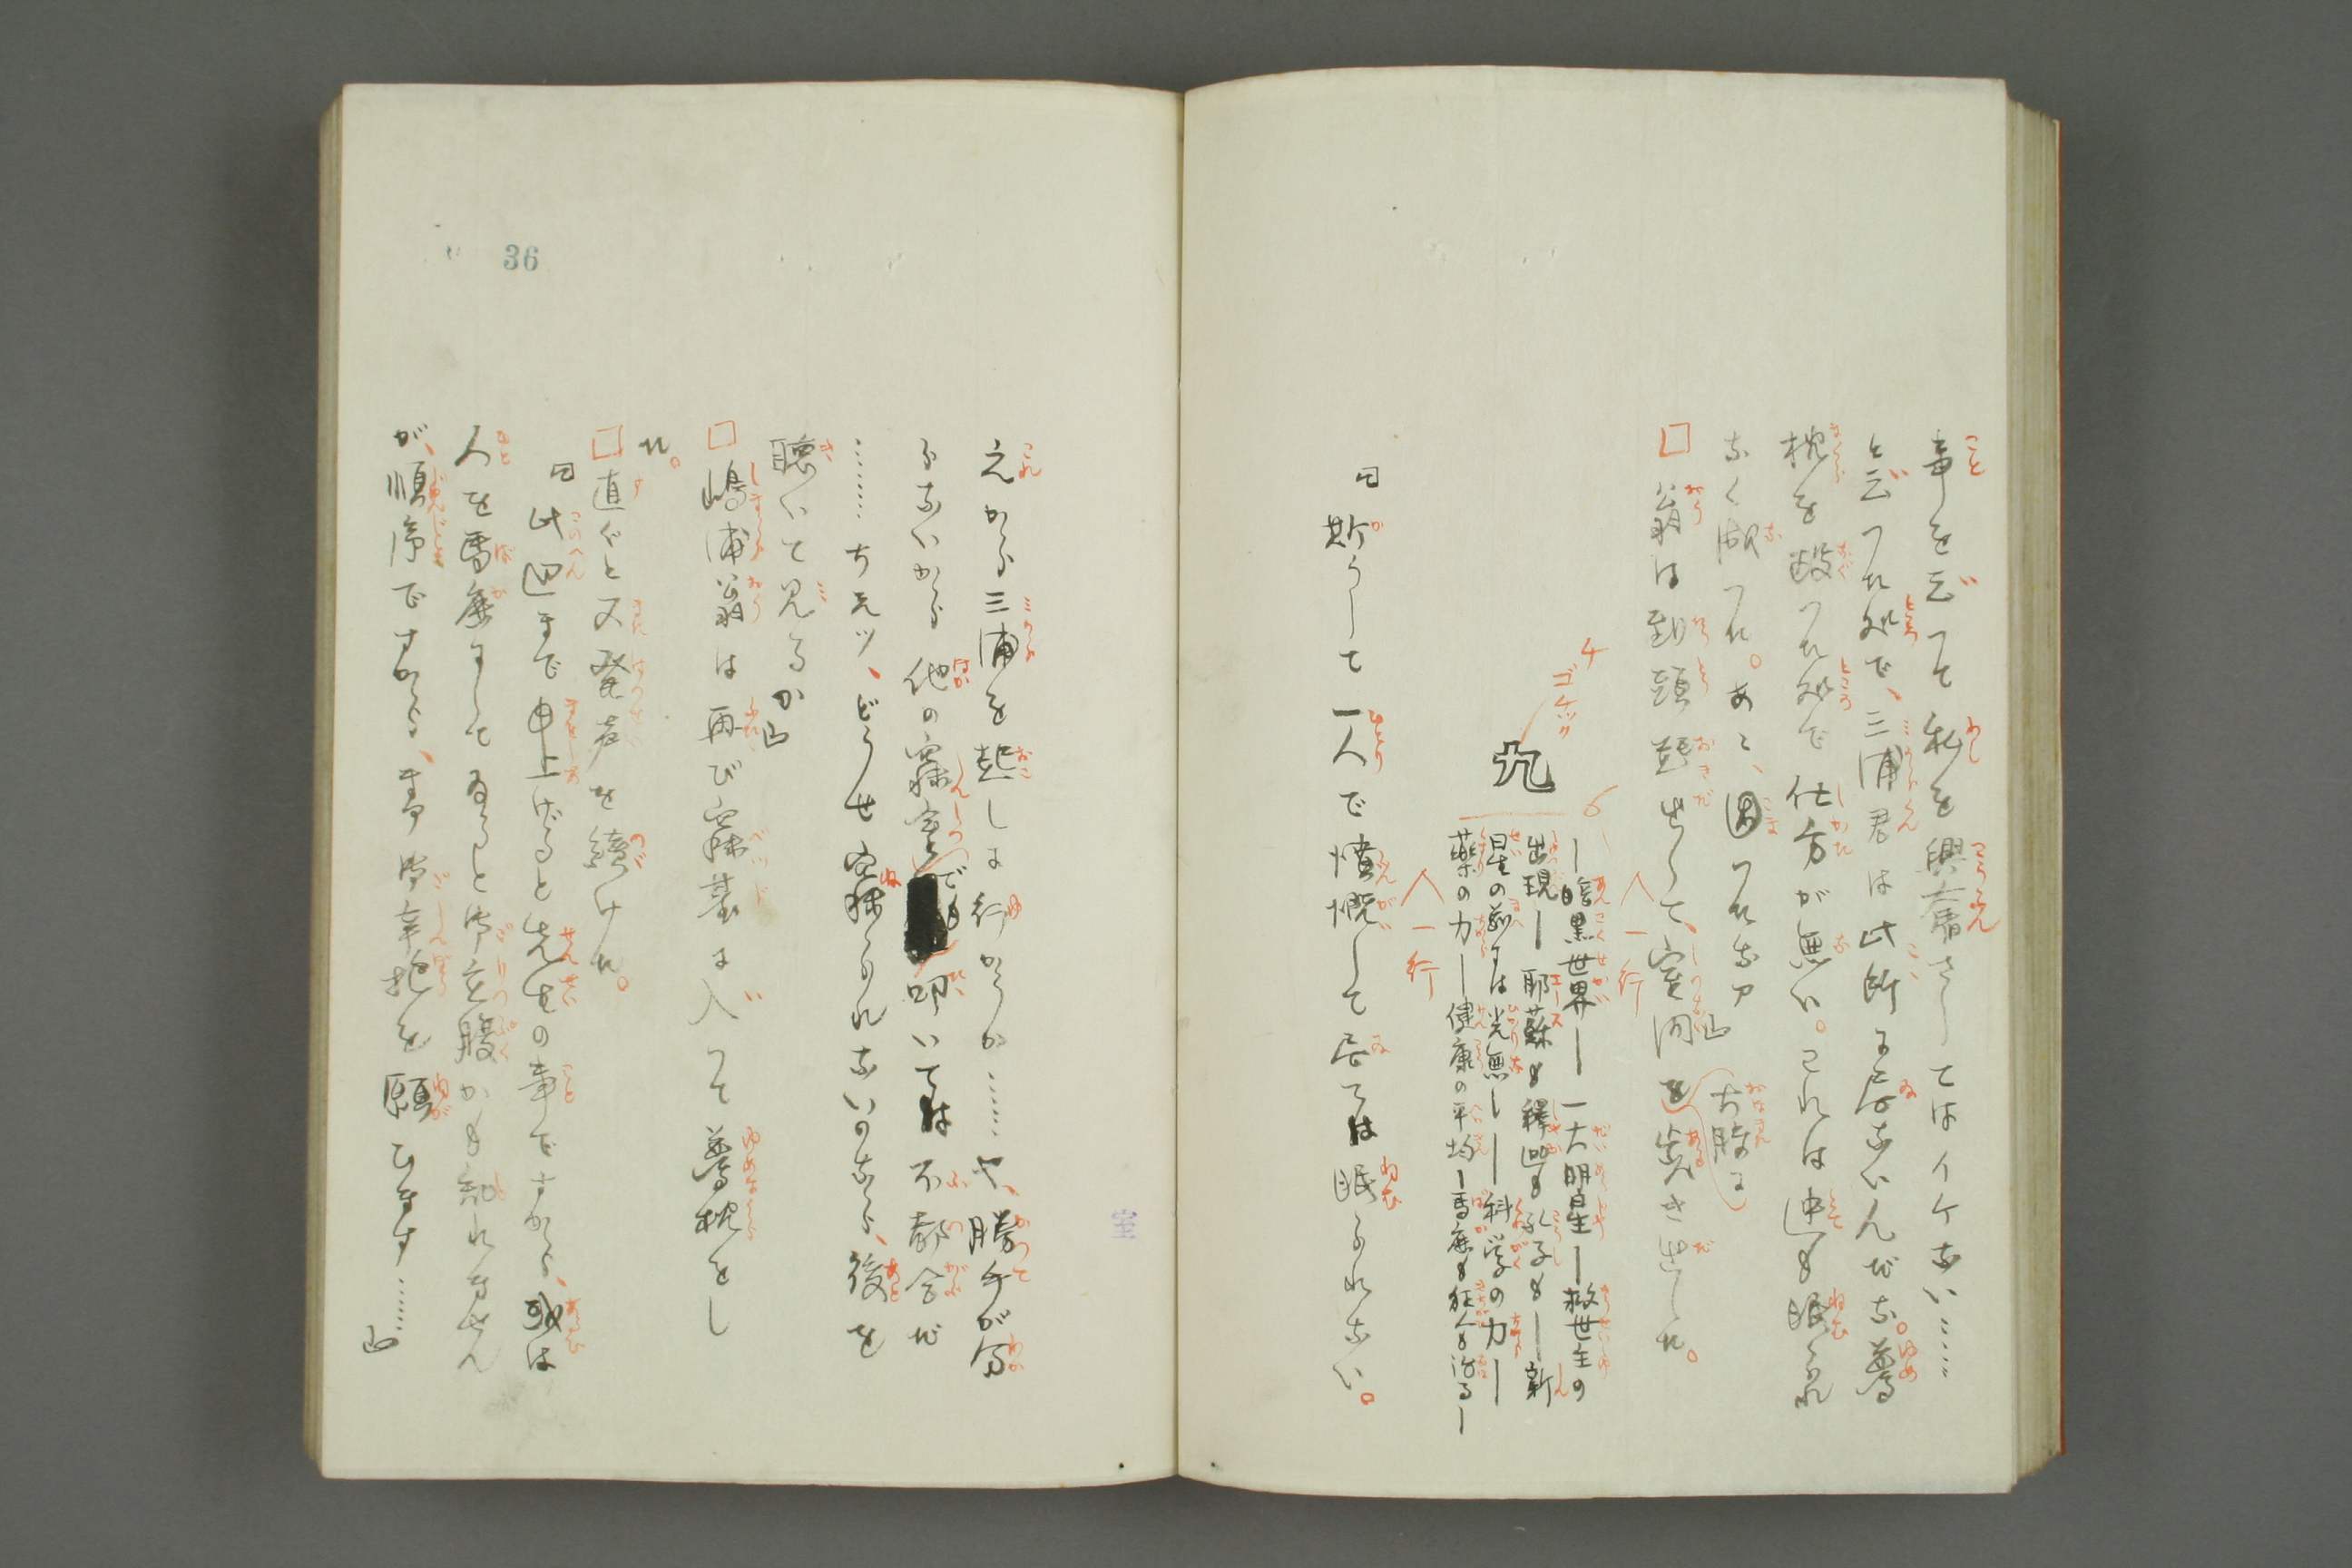 事を云つて私を興奮さしてはイケない……
と云つた処で、三浦君は此所に居ないんだな。夢
枕を殴つた処で仕方が無い。これは迚も眠られ
なく成つた。あゝ、困つたなァ」
□翁は到頭起出して、室内を大股に歩き出した。
チ
ゴケツク
九
6
人一行
―暗黒世界――一大明星―救世主の
出現―耶蘇も釋迦も孔子も―新
星の前には光無し―科学の力―
薬の力―健康の平均―馬鹿も狂人も治る―
人一行
「斯うして一人で憤慨して居ては眠られない。
室
之から三浦を起しに行かうか……や、勝手が分
らないから他の寐室でも叩いては不都合だ
……ちえッ、どうせ寐られないのなら、後を
聴いて見るか」
□嶋浦翁は再び寐臺に入つて夢枕をし
た。
□直ぐと又発声を續けた。
「此辺まで申上げると先生の事ですから、或は
人を馬鹿にしてゐると御立腹かも知れません
が、順序ですから、まア御辛抱を願ひます……」
36